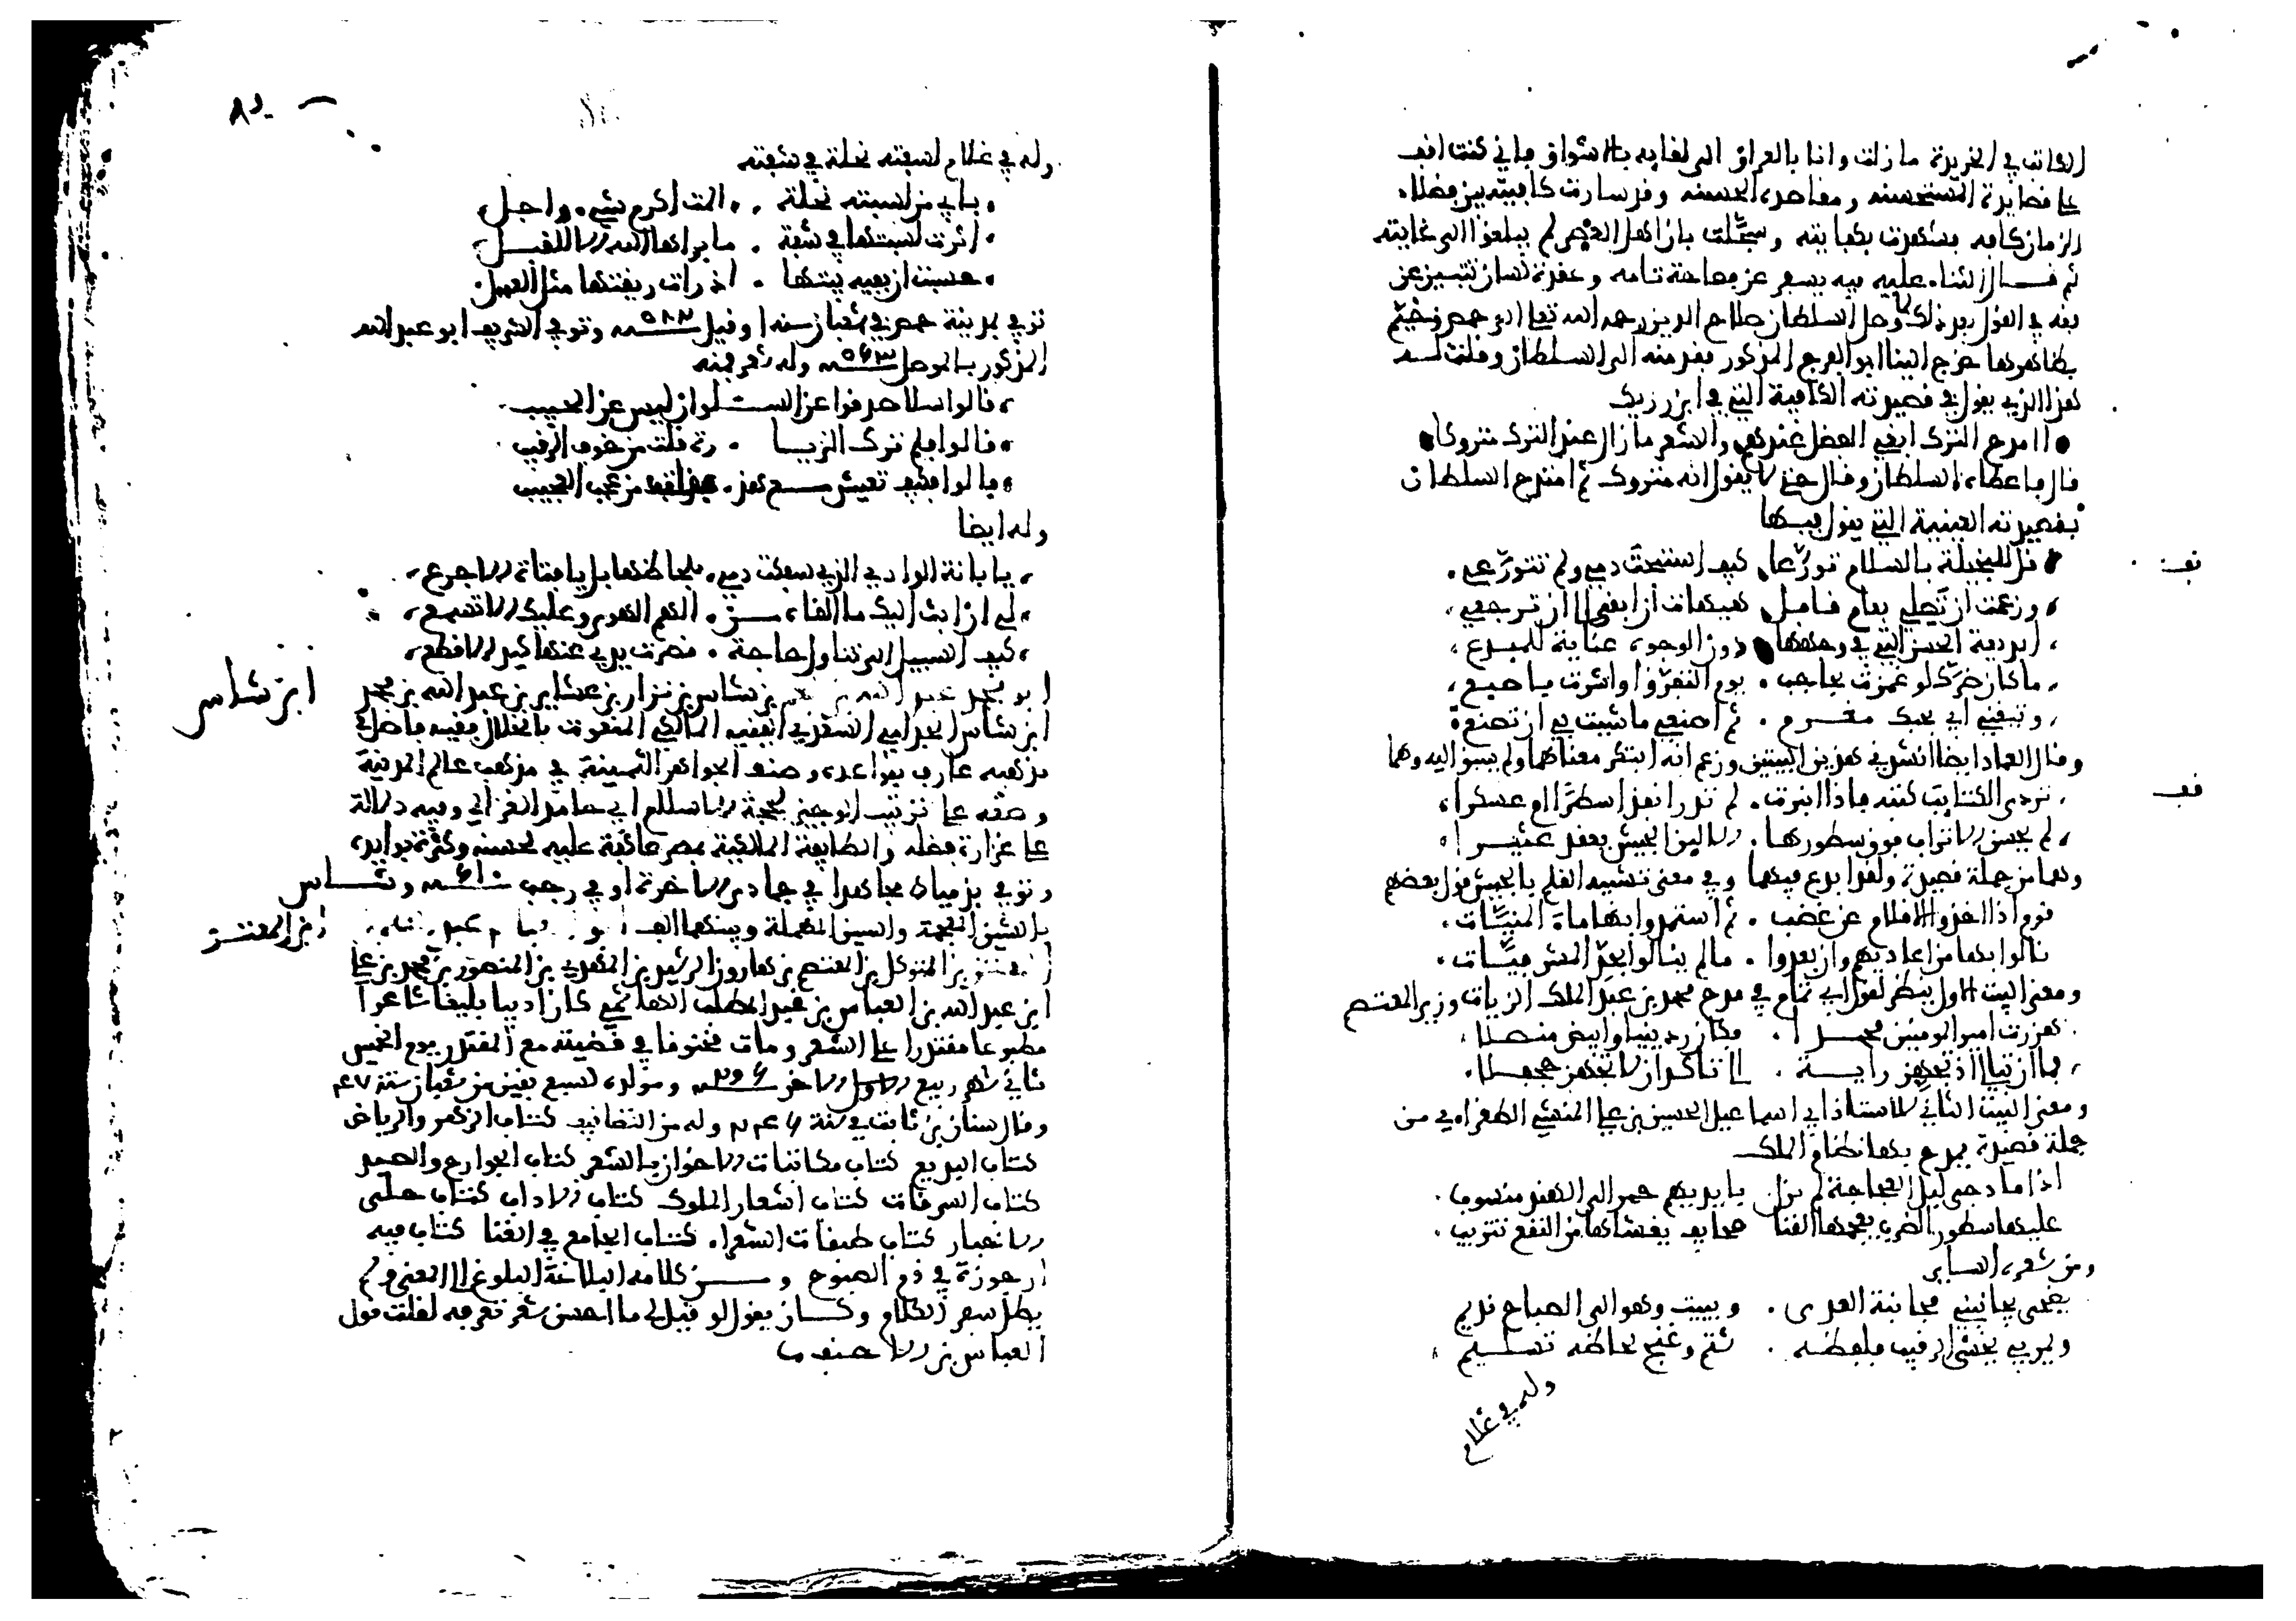 الكاتب في الخريدة ما زلت وانا بالعراق الى لقايه بالاشواق فاني كنت اقف
على قصايده المستحسنه ومقاصده الحسنه وقد سارت كافيته بين فضلاء
الزمان كافه فشهدت بكفايته وسجّلت بان اهل العصر لم يبلغوا الى غايته
ثم قال الثناء عليه فيه يسفر عن فصاحة تامه وعقدة لسان تتبين عن
فقه في القول بعد ذلك وصل السلطان صلاح الدين رحمه الله تعالى الى حمص وخيّم
بظاهرها خرج الينا ابو الفرج المذكور فقدمته الى السلطان وقلت له
هذا الذي يقول في قصيدته الكافية التي في ابن رزيك
اامدح الترك ابغي الفضل عندهم والشعر ما زال عند الترك متروكا
قال فاعطاه السلطان وقال حتى لا يقول انه متروك ثم امتدح السلطان
بقصيدته العينية التي يقول فيها
قل للبخيلة بالسلام تورّعا كيف استبحت دمي ولم تتورّعي
وزعمت ان تصلي بعام قابل هيهات ان ابقى الى ان ترجعي
ابديعة الحسن التي في وجهها دون الوجوه عناية للمبدع
ما كان ضرّك لو غمزت بحاجب يوم التفرّق او اشرت باصبع
وتيقني اني بحبك مغرم ثم اصنعي ما شيت بي ان تصنع
وقال العماد ايضا انشدني هذين البيتين وزعم انه ابتكر معناهما ولم يسبق اليه وهما
تردي الكتايب كتبه فاذا انبرت لم تدر انفذ اسطرًا ام عسكرا
لم يحسن الاتراب فوق سطورها الا لان الجيش يعقد عثيرا
وهما من جملة قصيدة ولقد ابدع فيهما وفي معنى تشبيه القلم بالجيش قول بعضهم
قوم اذا اخذوا الاقلام عن غضب ثم استمدوا بها ماء المنيّات
نالوا بها من اعاديهم وان بعدوا ما لم ينالوا بحدّ المشرفيّات
ومعنى البيت الاول ينظر لقول ابي تمام في مدح محمد بن عبد الملك الزيات وزير المعتصم
هززت امير المومنين محمدا فكان ردينيا وابيض منصلا
فما ان تبالي اذ تجهز راية الى ناكث ان لا تجهز جحفلا
ومعنى البيت الثاني للاستاذ ابي اسماعيل الحسين بن علي المنشي الطغراءي من
جملة قصيدة يمدح بها نظام الملك
اذا ما دجى ليل العجاجة لم يزل بايديهم جمر الى الهند منسوب
عليها سطور الضرب يعجمها القنا صحايف يغشاها من النقع تتريب
ومن شعره الساير
يضحي يجانبني مجانبة العدى ويبيت وهو الى الصباح نديم
ويمر بي يخشى الرقيب فلفظه شتم وغنج لحاظه تسليم
وله في غلام
وله في غلام لسبته نحلة في شفته
بابي من لسبته نحلة المت اكرم شيء واجل
اثرت لسبتها في شفة ما براها الله الا للقبل
حسبت ان بفيه بيتها اذ رات ريقتها مثل العسل
توفي بمدينة حمص في شعبان سنة ا وقيل ٥٨٢ وتوفي الشريف ابو عبد الله
المذكور بالموصل ٥٦٣ وله شعر فمنه
قالوا سلا صدقوا عن السلوان ليس عن الحبيب
قالوا فلم ترك الزيارة قلت من خوف الرقيب
قالوا فكيف تعيش مع هذا فقلت من عجب العجيب
وله ايضا
يا بانة الوادي التي سفكت دمي بلحاظها بل يا فتاة الاجرع
لي ان ابث اليك ما القاه من الم الهوى وعليك الا تسمعي
كيف السبيل الى تناول حاجة قصرت يدي عنها كيد الاقطع
ابن شاس
ابو محمد عبد الله بن نجم بن شاس بن نزار بن عشاير بن عبد الله بن محمد
ابن شاس الجذامي السعدي الفقيه المالكي المنعوت بالخلال فقيه فاضل
بمذهبه عارف بقواعده وصنف الجواهر الثمينة في مذهب عالم المدينة
وضعه على ترتيب الوجيز لحجة الاسلام ابي حامد الغزالي وفيه دلالة
على غزارة فضله والطايفة المالكية بمصر عاكفة عليه لحسنه وكثرة فوايده
وتوفي بدمياط مجاهدا في جمادى الاخرة او في رجب ٦١٠ وشاس
بالشين المعجمة والسين المهملة وبينهما الف ابو العباس عبد الله
ابن المعتز
ابن المعتز بن المتوكل بن المعتصم بن هارون الرشيد بن المهدي بن المنصور بن محمد بن علي
ابن عبد الله بن العباس بن عبد المطلب الهاشمي كان اديبا بليغا شاعرا
مطبوعا مقتدرا على الشعر ومات مخنوقا في قضيته مع المقتدر يوم الخميس
ثاني شهر ربيع الاول الاخر ٢٩٦ ومولده لسبع بقين من شعبان سنة ٢٤٧
وقال سنان بن ثابت في سنة ٢٤٦ وله من التصانيف كتاب الزهر والرياض
كتاب البديع كتاب مكاتبات الاخوان بالشعر كتاب الجوارح والصيد
كتاب السرقات كتاب اشعار الملوك كتاب الاداب كتاب حلى
الاخبار كتاب طبقات الشعراء كتاب الجامع في الغنا كتاب فيه
ارجوزة في ذم الصبوح ومن كلامه البلاغة البلوغ الى المعنى ولم
يطل سفر الكلام وكان يقول لو قيل لي ما احسن شعر تعرفه لقلت قول
العباس بن الاحنف